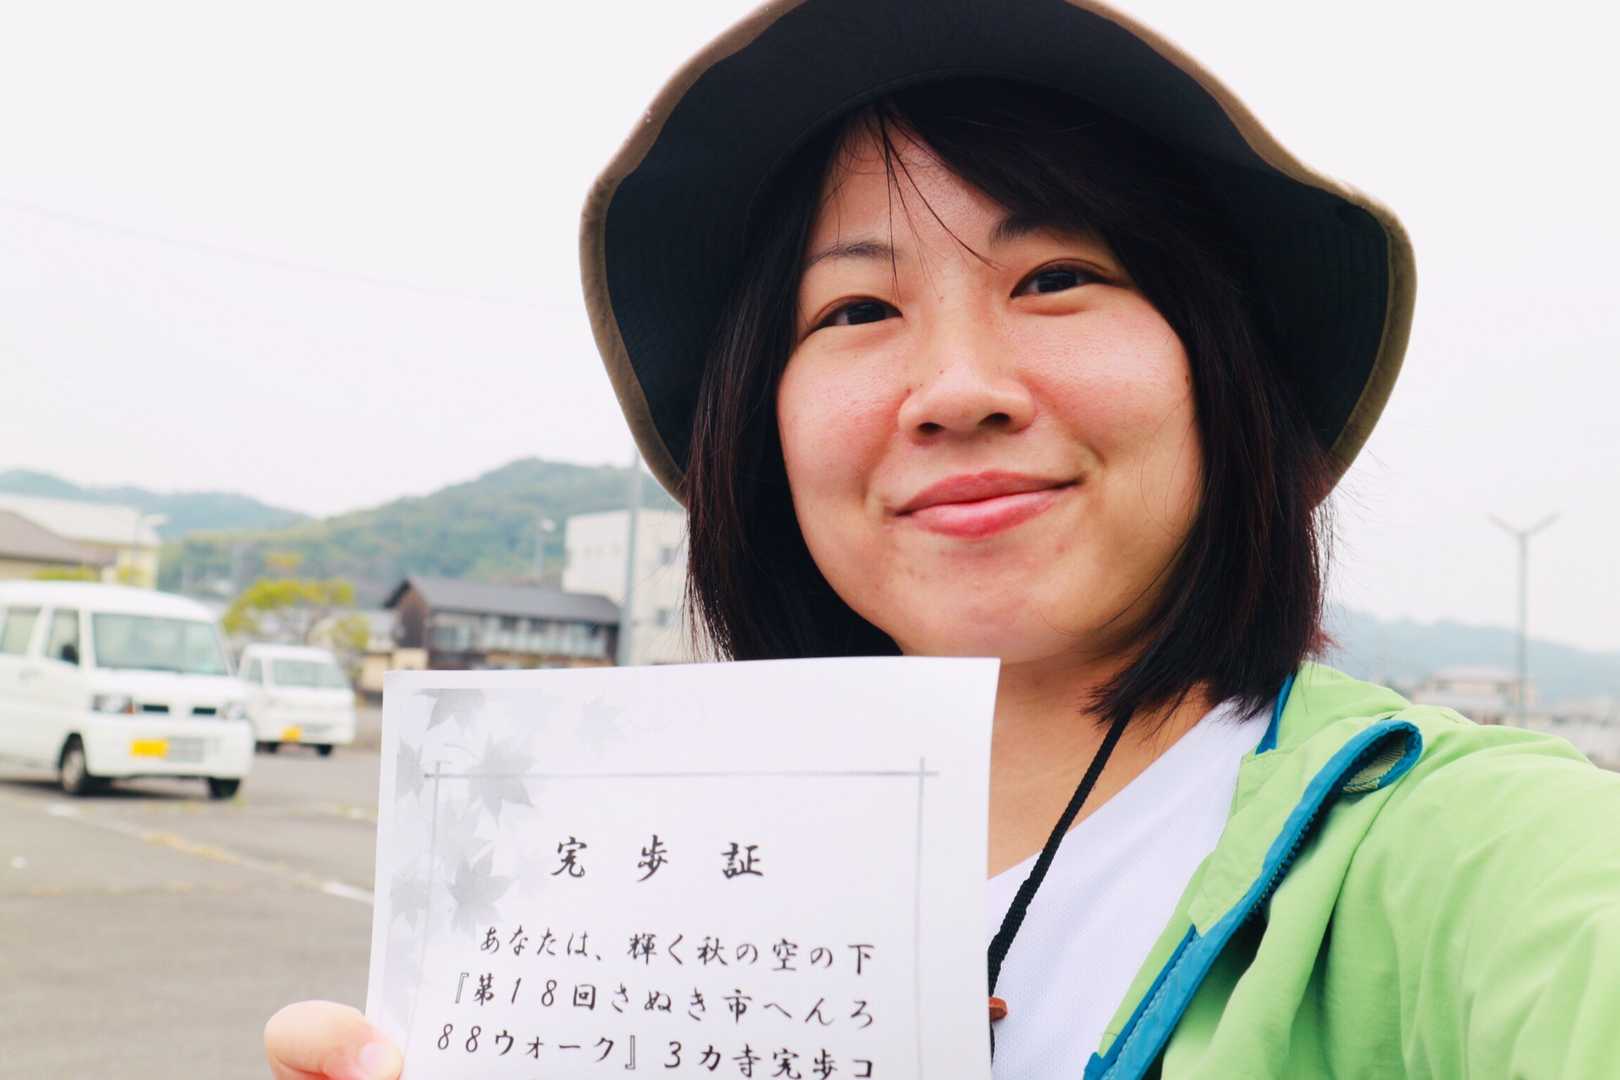 完歩証
あなたは、輝く秋の空の下
『第18回さぬき市へんろ
88ウォーク』3カ寺完歩コ